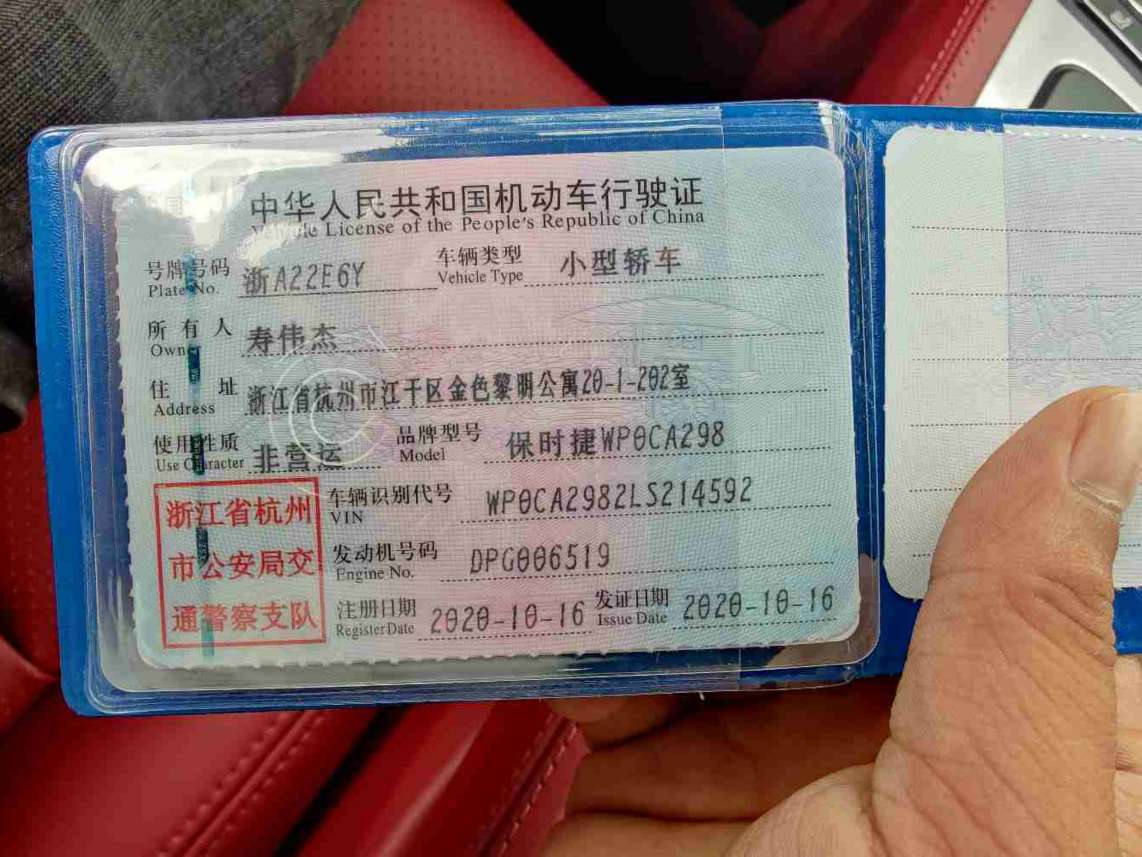 中华人民共和国机动车行驶证
Vehicle License of the People's Republic of China
号牌号码 浙A22E6Y 车辆类型 小型轿车
Plate No. Vehicle Type
所有人 寿伟杰
Owner
住址 浙江省杭州市江干区金色黎明公寓20-1-202室
Address
使用性质 非营运 品牌型号 保时捷WP0CA298
Use Character Model
浙江省杭州
市公安局交
通警察支队
车辆识别代号 WP0CA2982LS214592
VIN
发动机号码 DPG006519
Engine No.
注册日期 2020-10-16 发证日期 2020-10-16
Register Date Issue Date